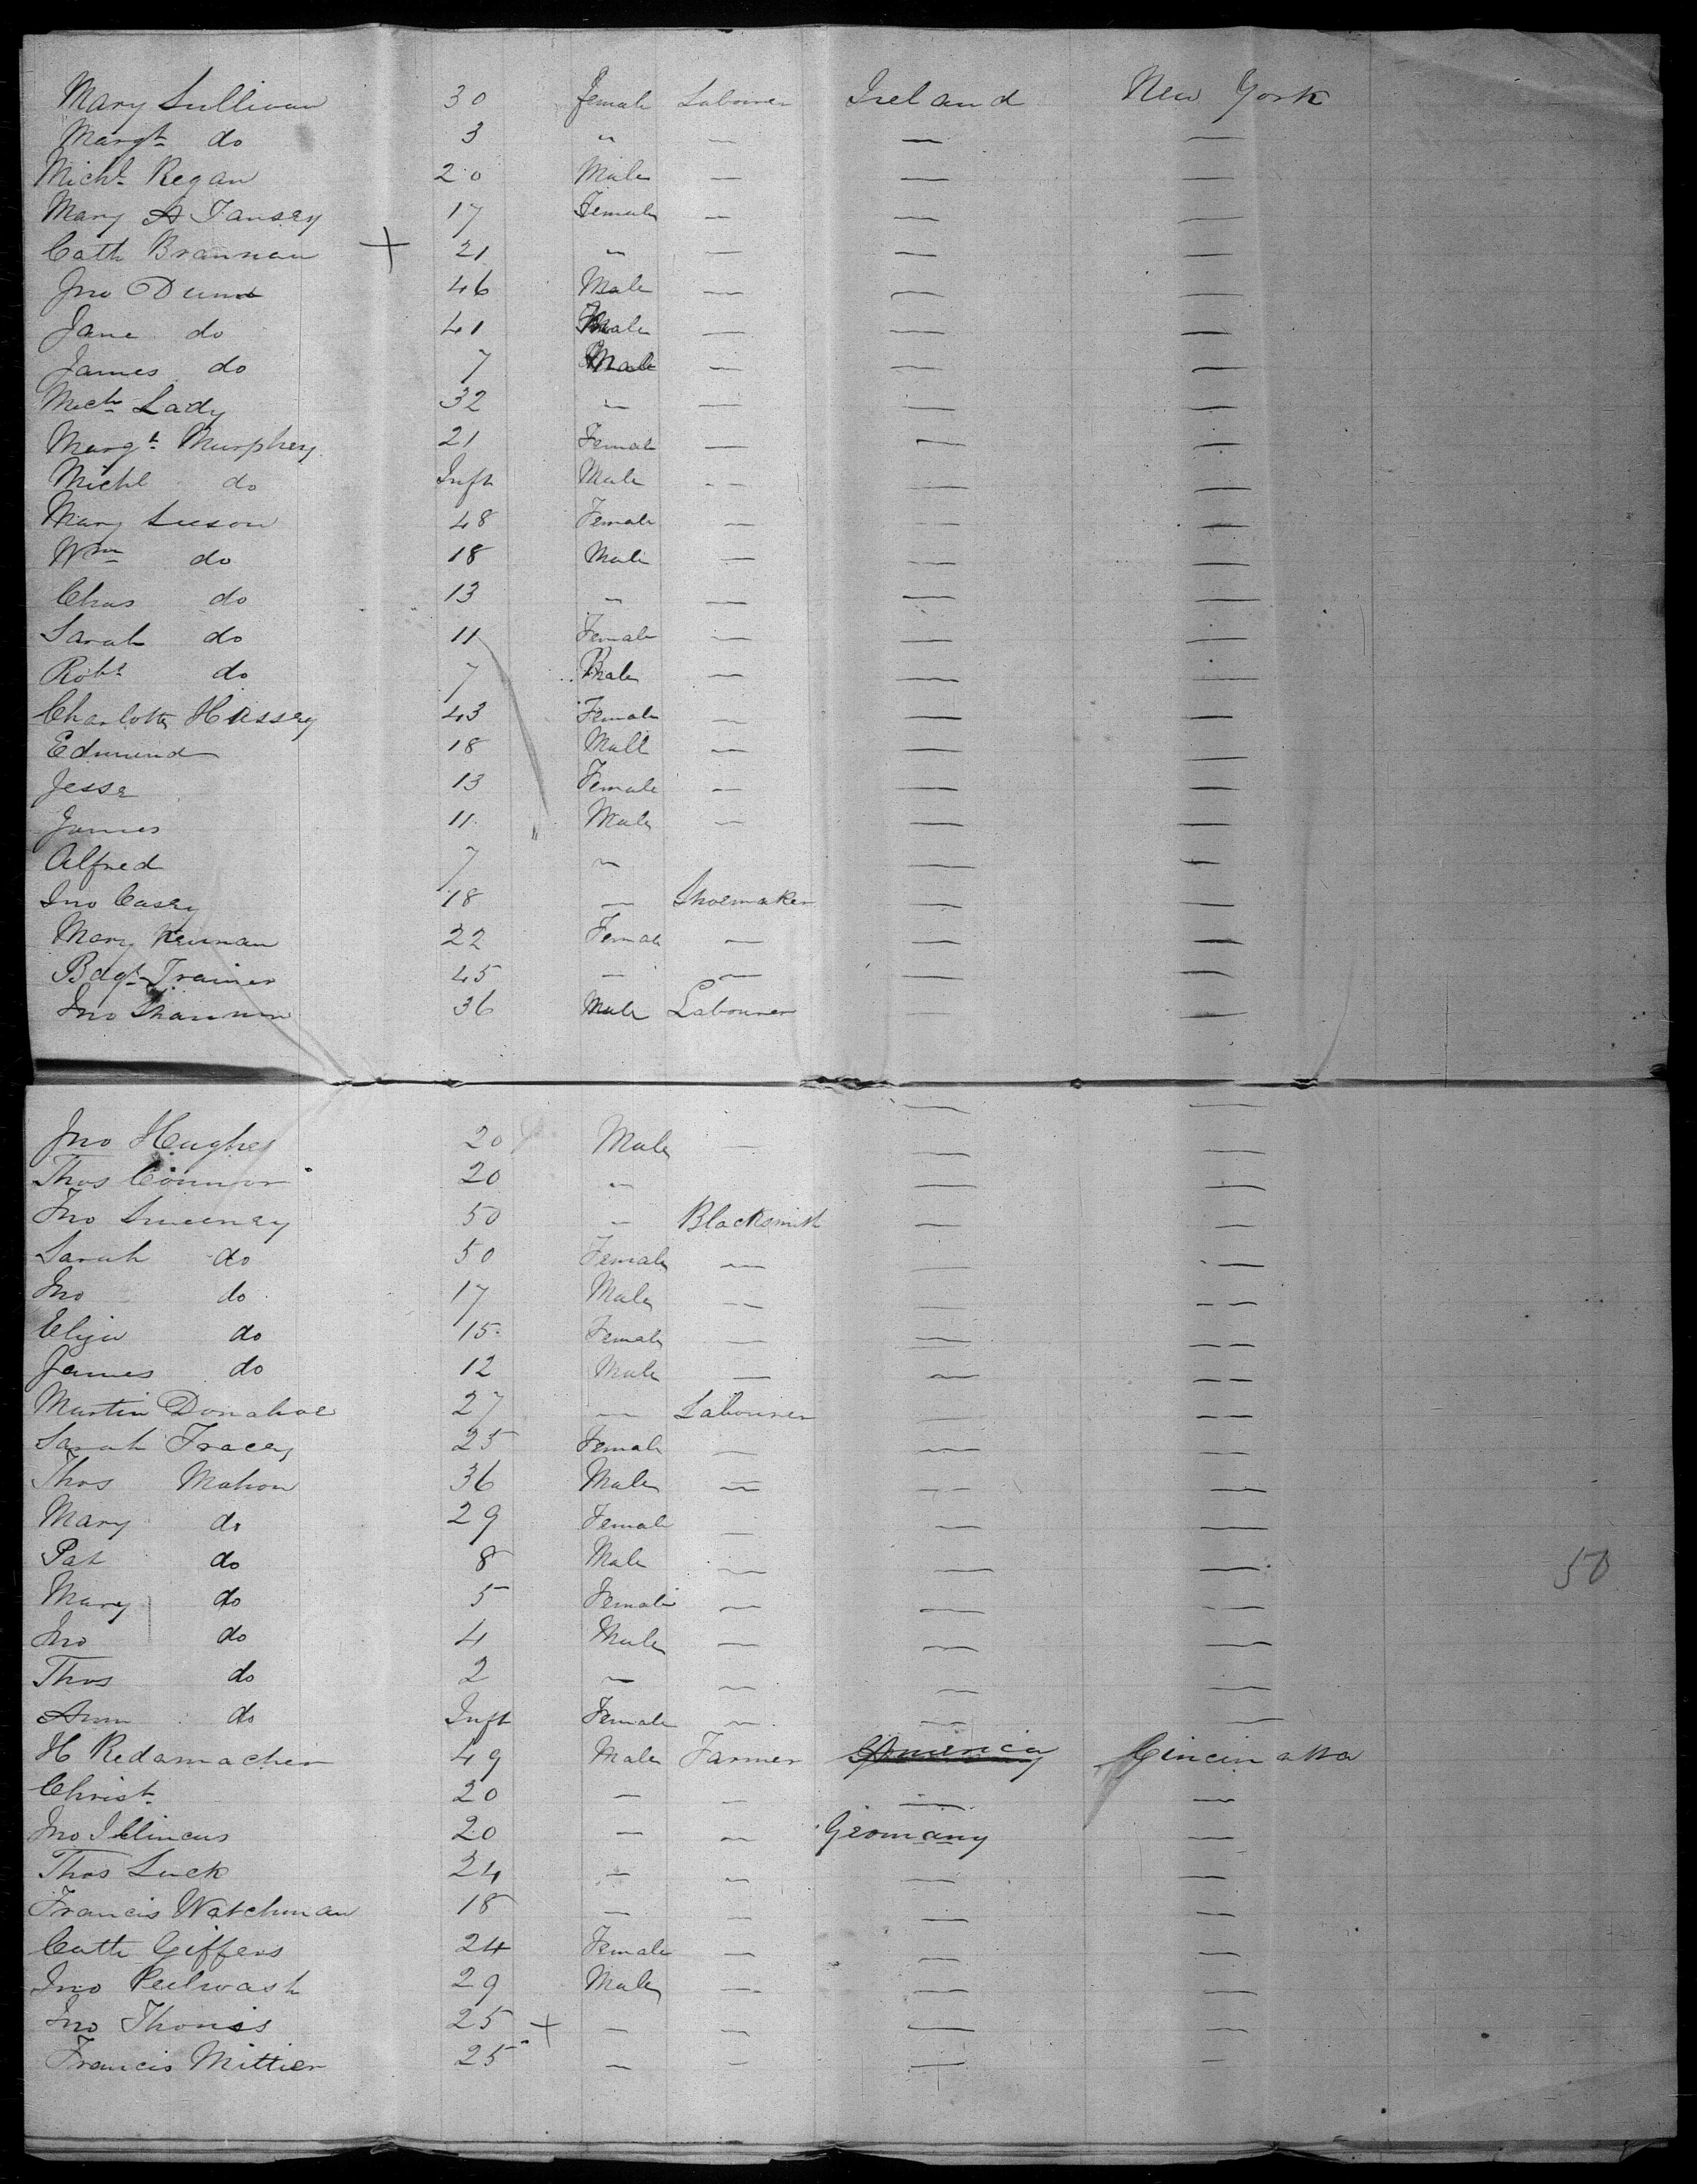 Mary Sullivan 30 Female Labourer Ireland New York
Margt do 3 " — — —
Michl Regan 20 Male — — —
Mary A Tansey 17 Female — — —
Cath Brannan + 21 " — — —
Jno Dunn 46 Male — — —
Jane do 41 Female — — —
James do 7 Male — — —
Mich Lady 32 — — — —
Margt Murphey 21 Female — — —
Michl do Inft Male — — —
Mary Leeson 48 Female — — —
Wm do 18 Male — — —
Chas do 13 " — — —
Sarah do 11 Female — — —
Robt do 7 Male — — —
Charlotte Hussey 43 Female — — —
Edmund 18 Male — — —
Jesse 13 Female — — —
James 11 Male — — —
Alfred 7 " — —
Jno Casey 18 — Shoemaker — —
Mary Keernan 22 Female — — —
Bdgt Trainer 45 — — — —
Jno Shannon 36 Male Labourer — —
Jno Hughes 20 Male — — —
Thos Connor 20 " — —
Jno Sweeney 50 " Blacksmith — —
Sarah do 50 Female — — —
Jno do 17 Male — — —
Eliza do 15 Female — — —
James do 12 Male — — —
Martin Donahoe 27 — Labourer — —
Sarah Tracey 25 Female — — —
Thos Mahon 36 Male — — —
Mary do 29 Female — — —
Pat do 8 Male — — —
50
Mary do 5 Female — — —
Jno do 4 Male — — —
Thos do 2 — — — —
Ann do Inft Female — — —
H Redamacher 49 Male Farmer America Cincinatta
Christ 20 — — — —
Jno 20 — — Germany —
Thos Luck 24 — — — —
Francis Watchman 18 — — — —
Cath Giffens 24 Female — — —
Jno Peelwash 29 Male — — —
Jno Thomis 25 + — — — —
Francis Mittier 25 — — — —